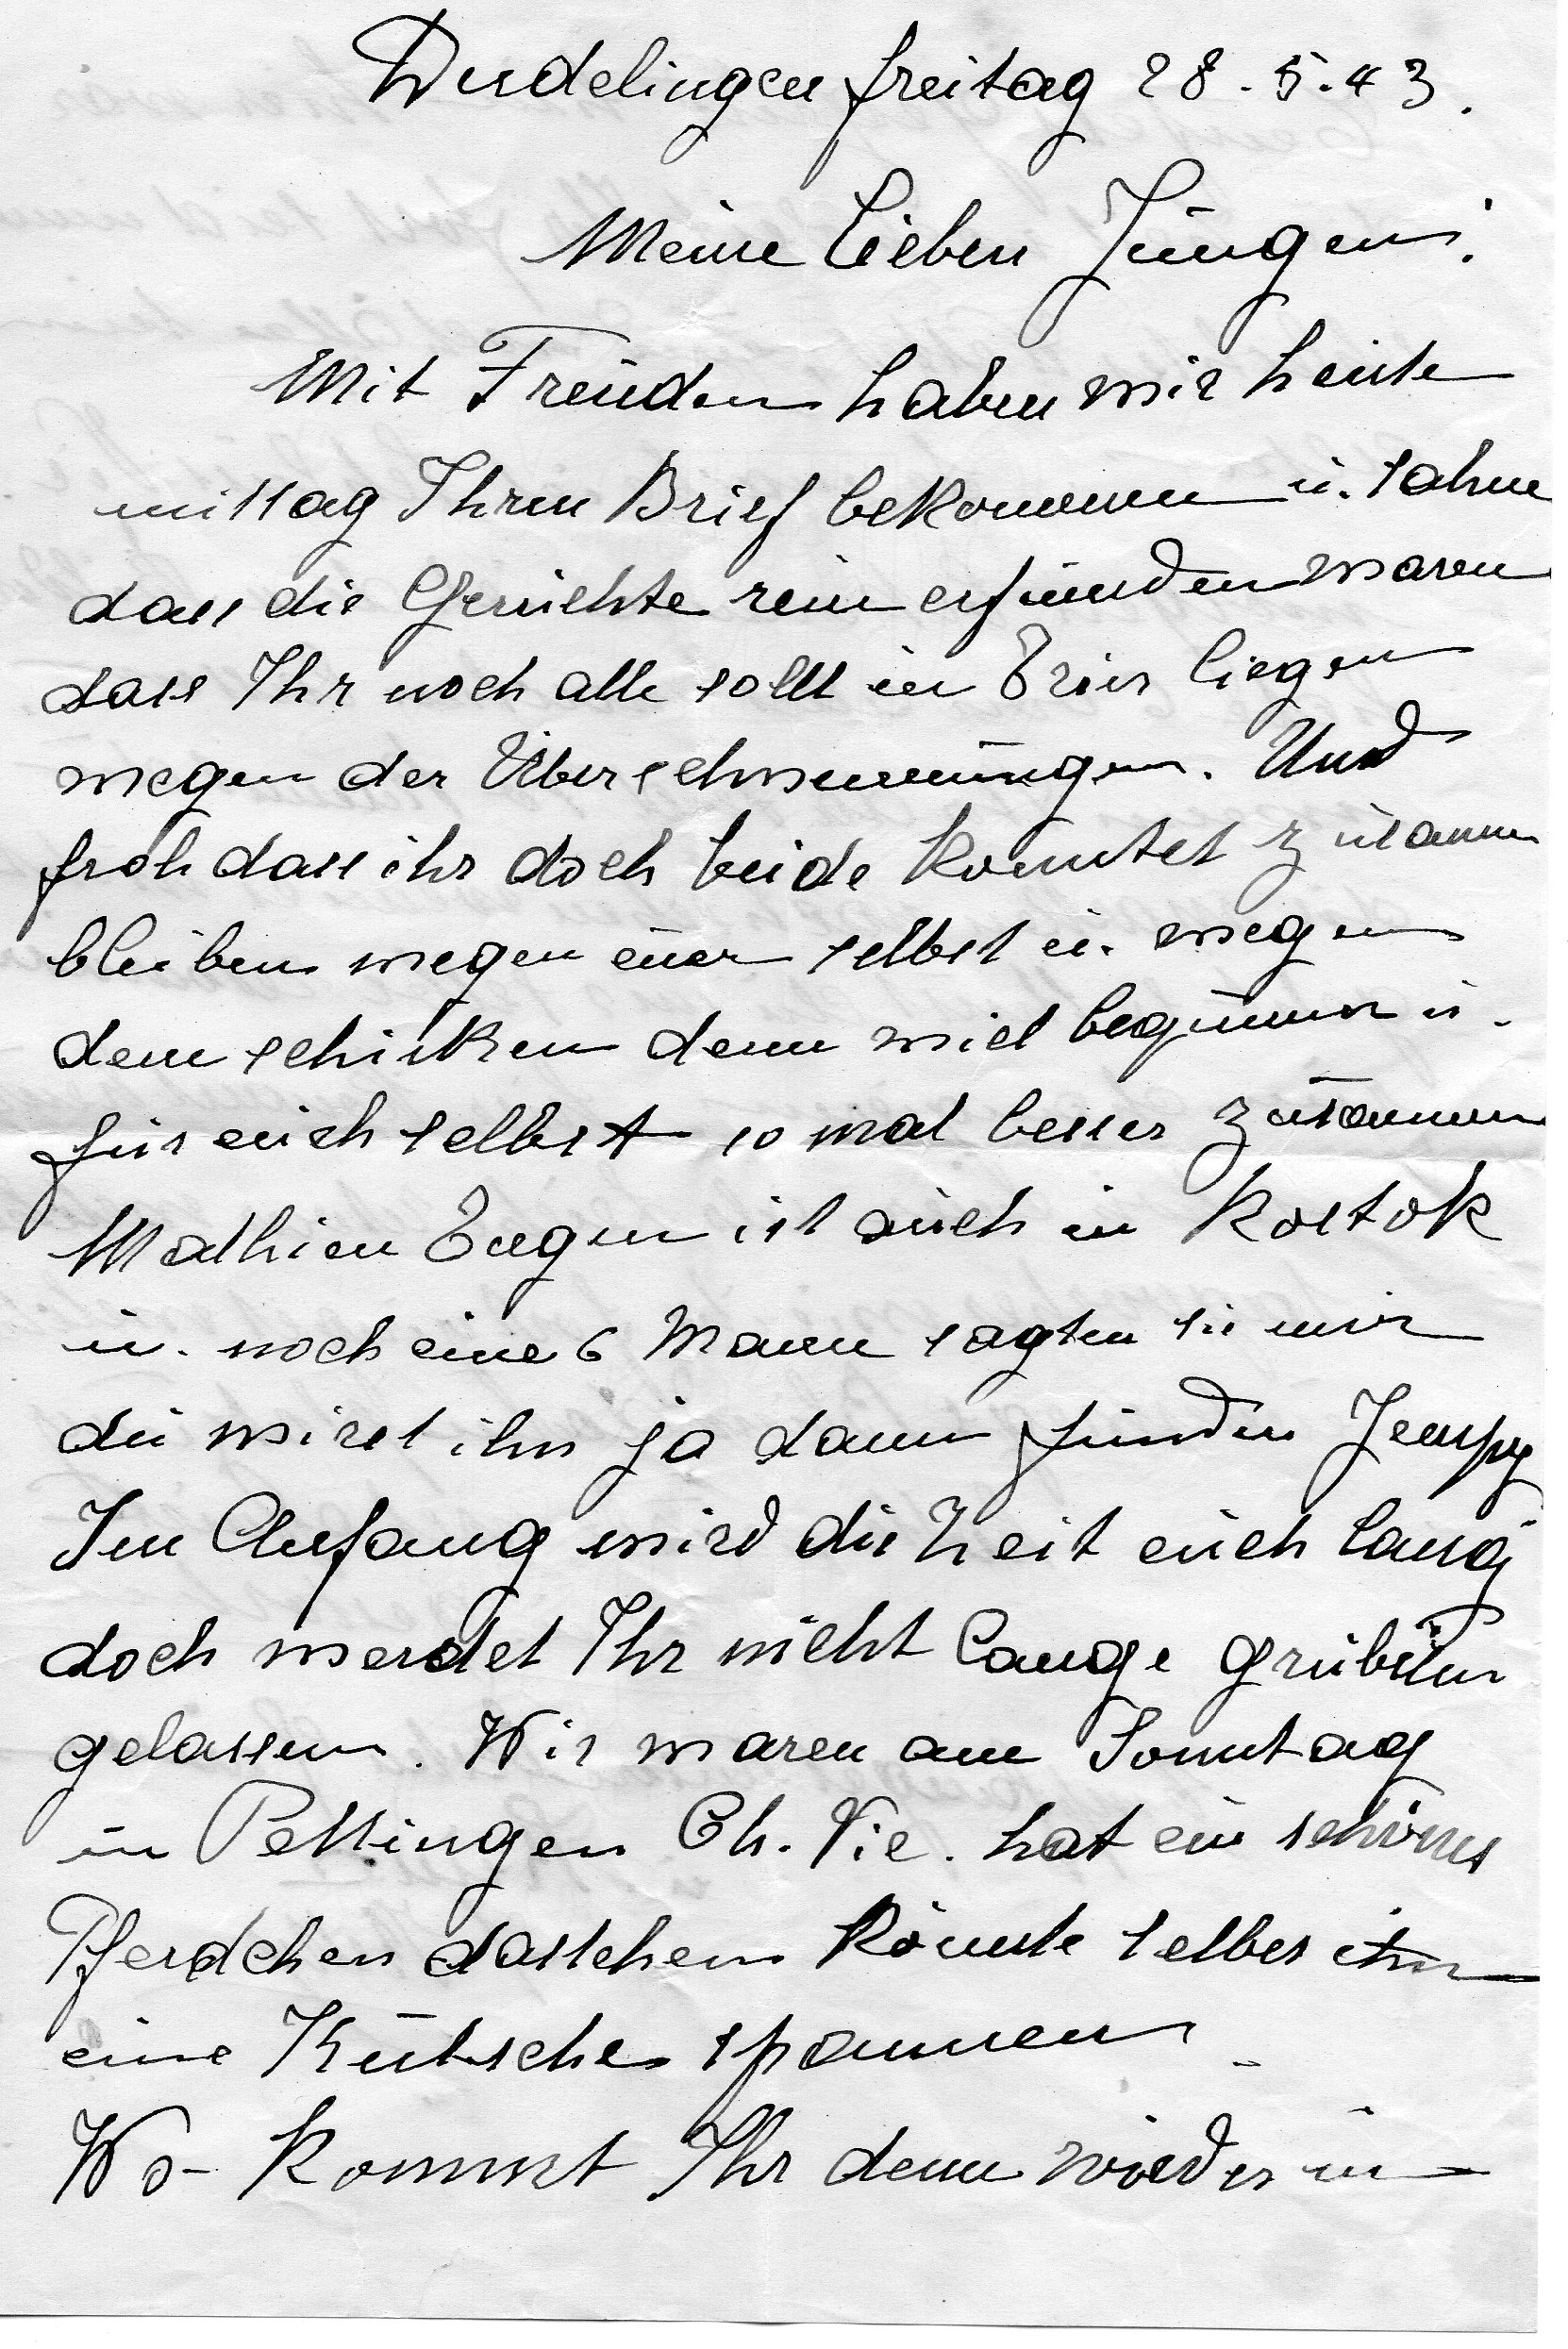 Dudelingen freitag 28.5.43.
Meine Lieben Jungen!
Mit Freuden haben wir heute
mittag Ihren Brief bekommen u. sahen
dass die Gerüchte rein erfunden waren
dass Ihr noch alle sollt in Trier liegen
wegen der Überschwemmungen. Und
froh dass ihr doch beide konntet zusamm
bleiben wegen euer selbst u. wegen
dem schicken denn viel bequemer u.
für euch selbst so mal besser zusammen
Mathieu Eugen ist auch in Rostok
u. noch eine 6 Mann sagten sie mir
du wirst ihn ja dann finden Jempy
Im Anfang wird die Zeit euch lang
doch werdet Ihr nicht lange grübeln
gelassen. Wir waren am Sonntag
in Pettingen Ch. Vic. hat ein schönes
Pferdchen dastehen könnte selber
eine Kutsche spannen.
Wo kommt Ihr denn wieder in